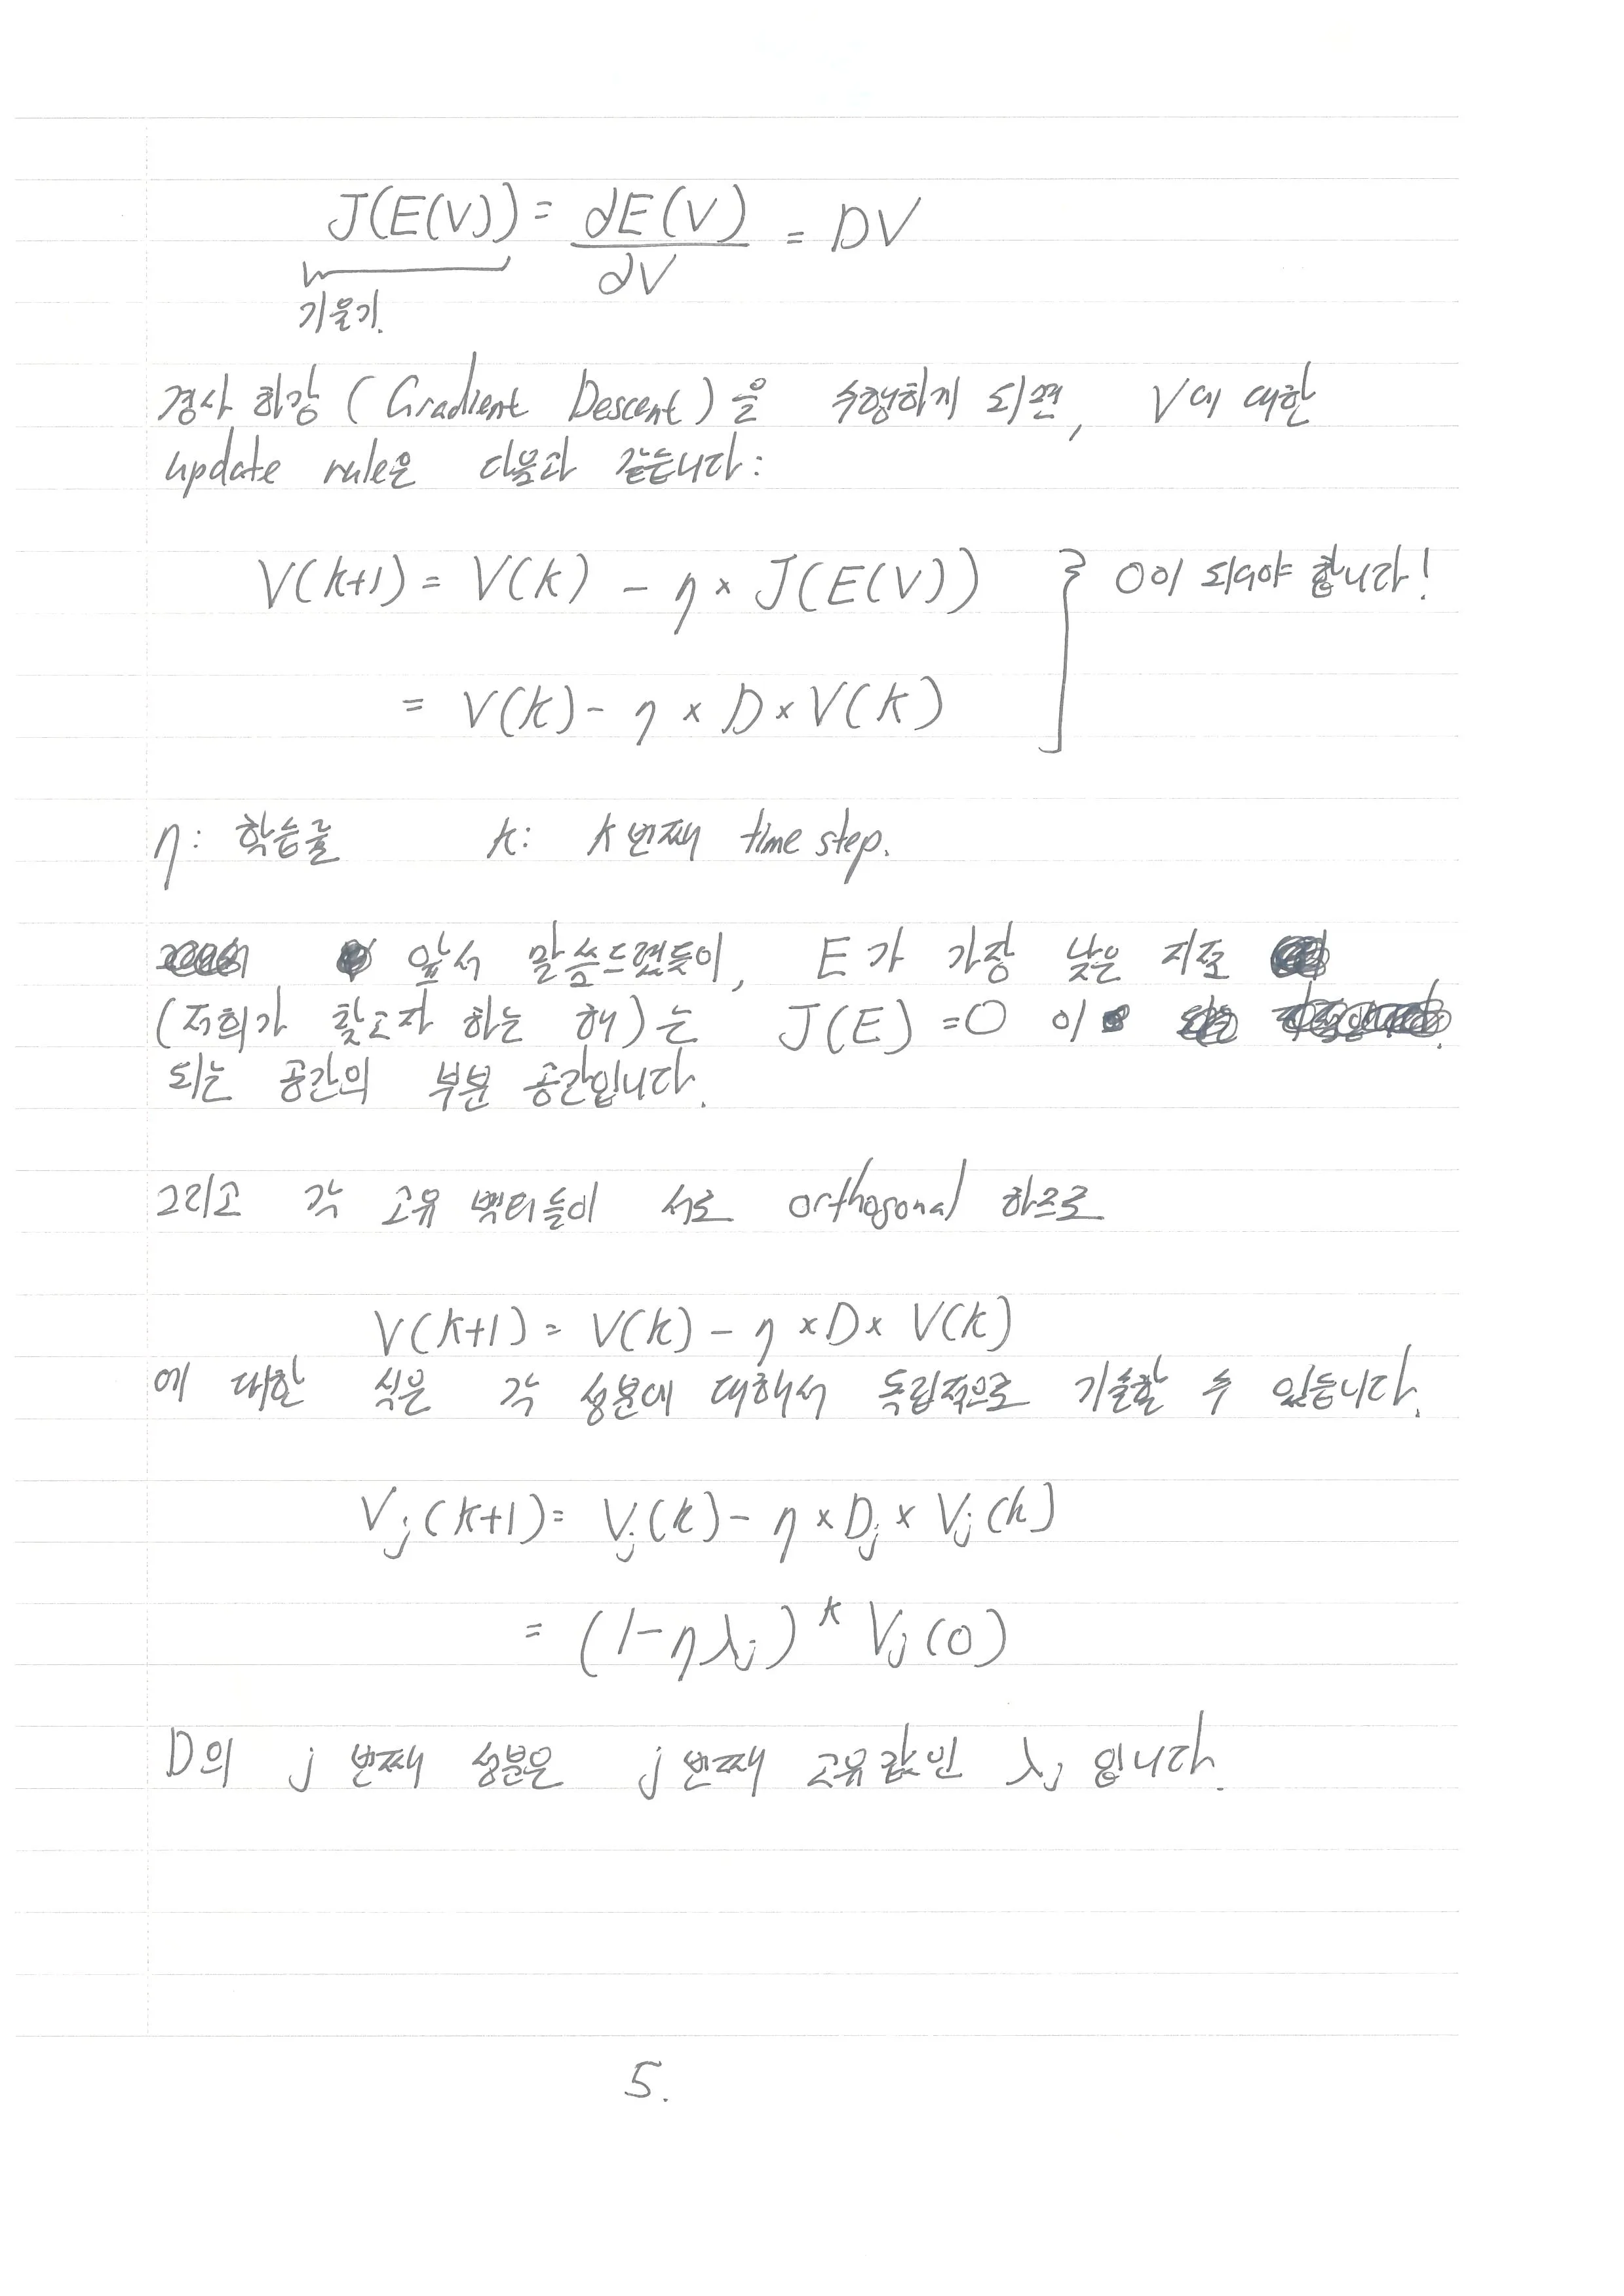 J(E(V)) = ∂E(V)/∂V = DV
기울기.
경사 하강 (Gradient Descent)을 수행하게 되면, V에 대한
update rule은 다음과 같습니다:
V(k+1) = V(k) - η × J(E(V)) } 0이 되어야 합니다!
= V(k) - η × D × V(k)
η: 학습률 k: k번째 time step.
앞서 말씀드렸듯이, E가 가장 낮은 지점
(저희가 찾고자 하는 해)는 J(E) = 0 이
되는 공간의 부분 공간입니다.
그리고 각 고유 벡터들이 서로 orthogonal 하므로
V(k+1) = V(k) - η × D × V(k)
에 대한 식은 각 성분에 대해서 독립적으로 기술할 수 있습니다.
Vj(k+1) = Vj(k) - η × Dj × Vj(k)
= (1-ηλj)^k Vj(0)
D의 j번째 성분은 j번째 고유값인 λj 입니다.
5.